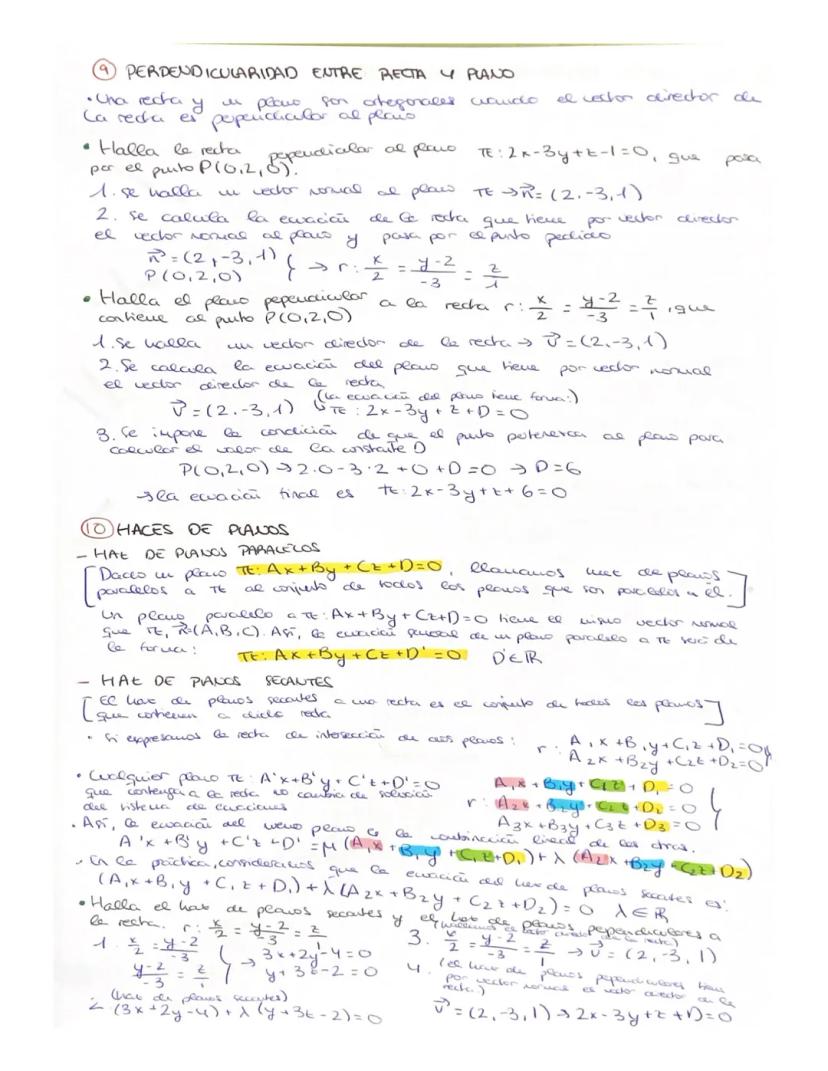 ⑨ PERDENDICULARIDAD ENTRE RECTA Y PLANO
• Una recta y un plano son ortogonales cuando el vector director de
la recta es perpendicular al plano
• Halla la recta perpendicular al plano π: 2x-3y+z-1=0, que pasa
por el punto P(0,2,0).
1. Se halla un vector normal al plano π → n⃗=(2,-3,1)
2. Se calcula la ecuación de la recta que tiene por vector director
el vector normal al plano y pasa por el punto pedido
n⃗=(2,-3,1)
P(0,2,0) } → r: x/2 = y-2/-3 = z/1
• Halla el plano perpendicular a la recta r: x/2 = y-2/-3 = z/1, que
contiene al punto P(0,2,0)
1. Se halla un vector director de la recta → v⃗=(2,-3,1)
2. Se calcula la ecuación del plano que tiene por vector normal
el vector director de la recta
(la ecuación del plano tiene forma:)
v⃗=(2,-3,1) ↳ π: 2x-3y+z+D=0
3. Se impone la condición de que el punto pertenezca al plano para
calcular el valor de la constante D
P(0,2,0) → 2·0-3·2+0+D=0 → D=6
→ la ecuación final es π: 2x-3y+z+6=0
⑩ HACES DE PLANOS
- HAZ DE PLANOS PARALELOS
[Dado un plano π: Ax+By+Cz+D=0, llamamos haz de planos
paralelos a π al conjunto de todos los planos que son paralelos a él.]
Un plano paralelo a π: Ax+By+Cz+D=0 tiene el mismo vector normal
que π, n⃗=(A,B,C). Así, la ecuación general de un plano paralelo a π será de
la forma:
π: Ax+By+Cz+D'=0 D'∈ℝ
- HAZ DE PLANOS SECANTES
[El haz de planos secantes a una recta es el conjunto de todos los planos
que contienen a dicha recta]
• Si expresamos la recta de intersección de dos planos: r: A₁x+B₁y+C₁z+D₁=0
A₂x+B₂y+C₂z+D₂=0 }
• Cualquier plano π: A'x+B'y+C'z+D'=0
que contenga a la recta no cambia la solución
del sistema de ecuaciones
r: A₁x+B₁y+C₁z+D₁=0
A₂x+B₂y+C₂z+D₂=0
A₃x+B₃y+C₃z+D₃=0 }
• Así, la ecuación del nuevo plano es la combinación lineal de las otras.
A'x+B'y+C'z+D'=μ(A₁x+B₁y+C₁z+D₁)+λ(A₂x+B₂y+C₂z+D₂)
• En la práctica, consideramos que la ecuación del haz de planos secantes es:
(A₁x+B₁y+C₁z+D₁)+λ(A₂x+B₂y+C₂z+D₂)=0 λ∈ℝ
• Halla el haz de planos secantes y el haz de planos perpendiculares a
la recta. r: x/2 = y-2/-3 = z/1
1. x/2 = y-2/-3
y-2/-3 = z/1 } → 3x+2y-4=0
y+3z-2=0
2. (haz de planos secantes)
(3x+2y-4)+λ(y+3z-2)=0
3. x/2 = y-2/-3 = z/1 → v⃗=(2,-3,1)
4. (el haz de planos perpendiculares tiene
por vector normal el vector director de la
recta.)
v⃗=(2,-3,1) → 2x-3y+z+D=0